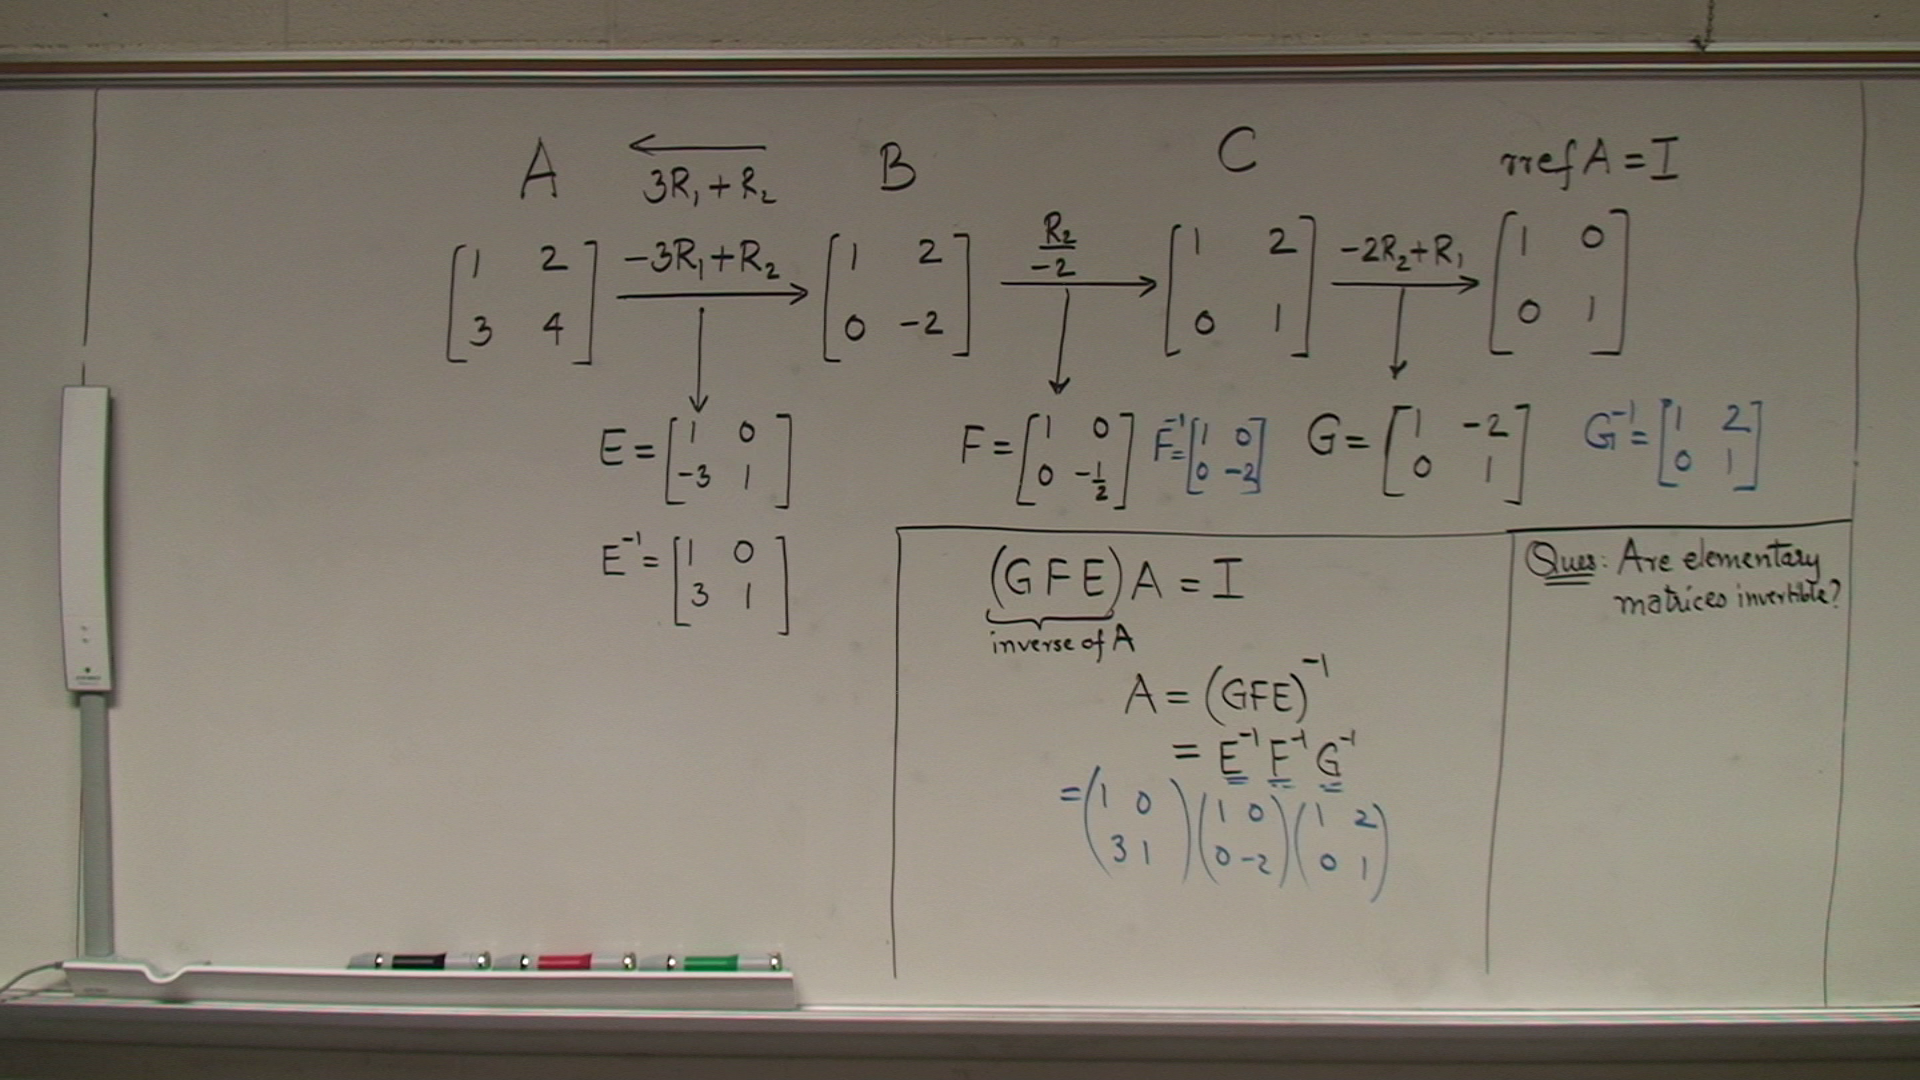 A ← B C rref A = I
3R₁ + R₂
[1 2; 3 4] −3R₁+R₂ → [1 2; 0 −2] R₂/−2 → [1 2; 0 1] −2R₂+R₁ → [1 0; 0 1]
E = [1 0; −3 1] F = [1 0; 0 −1/2] F⁻¹ = [1 0; 0 −2] G = [1 −2; 0 1] G⁻¹ = [1 2; 0 1]
E⁻¹ = [1 0; 3 1]
(GFE)A = I
inverse of A
A = (GFE)⁻¹
= E⁻¹ F⁻¹ G⁻¹
= (1 0; 3 1)(1 0; 0 −2)(1 2; 0 1)
Ques: Are elementary
matrices invertible?